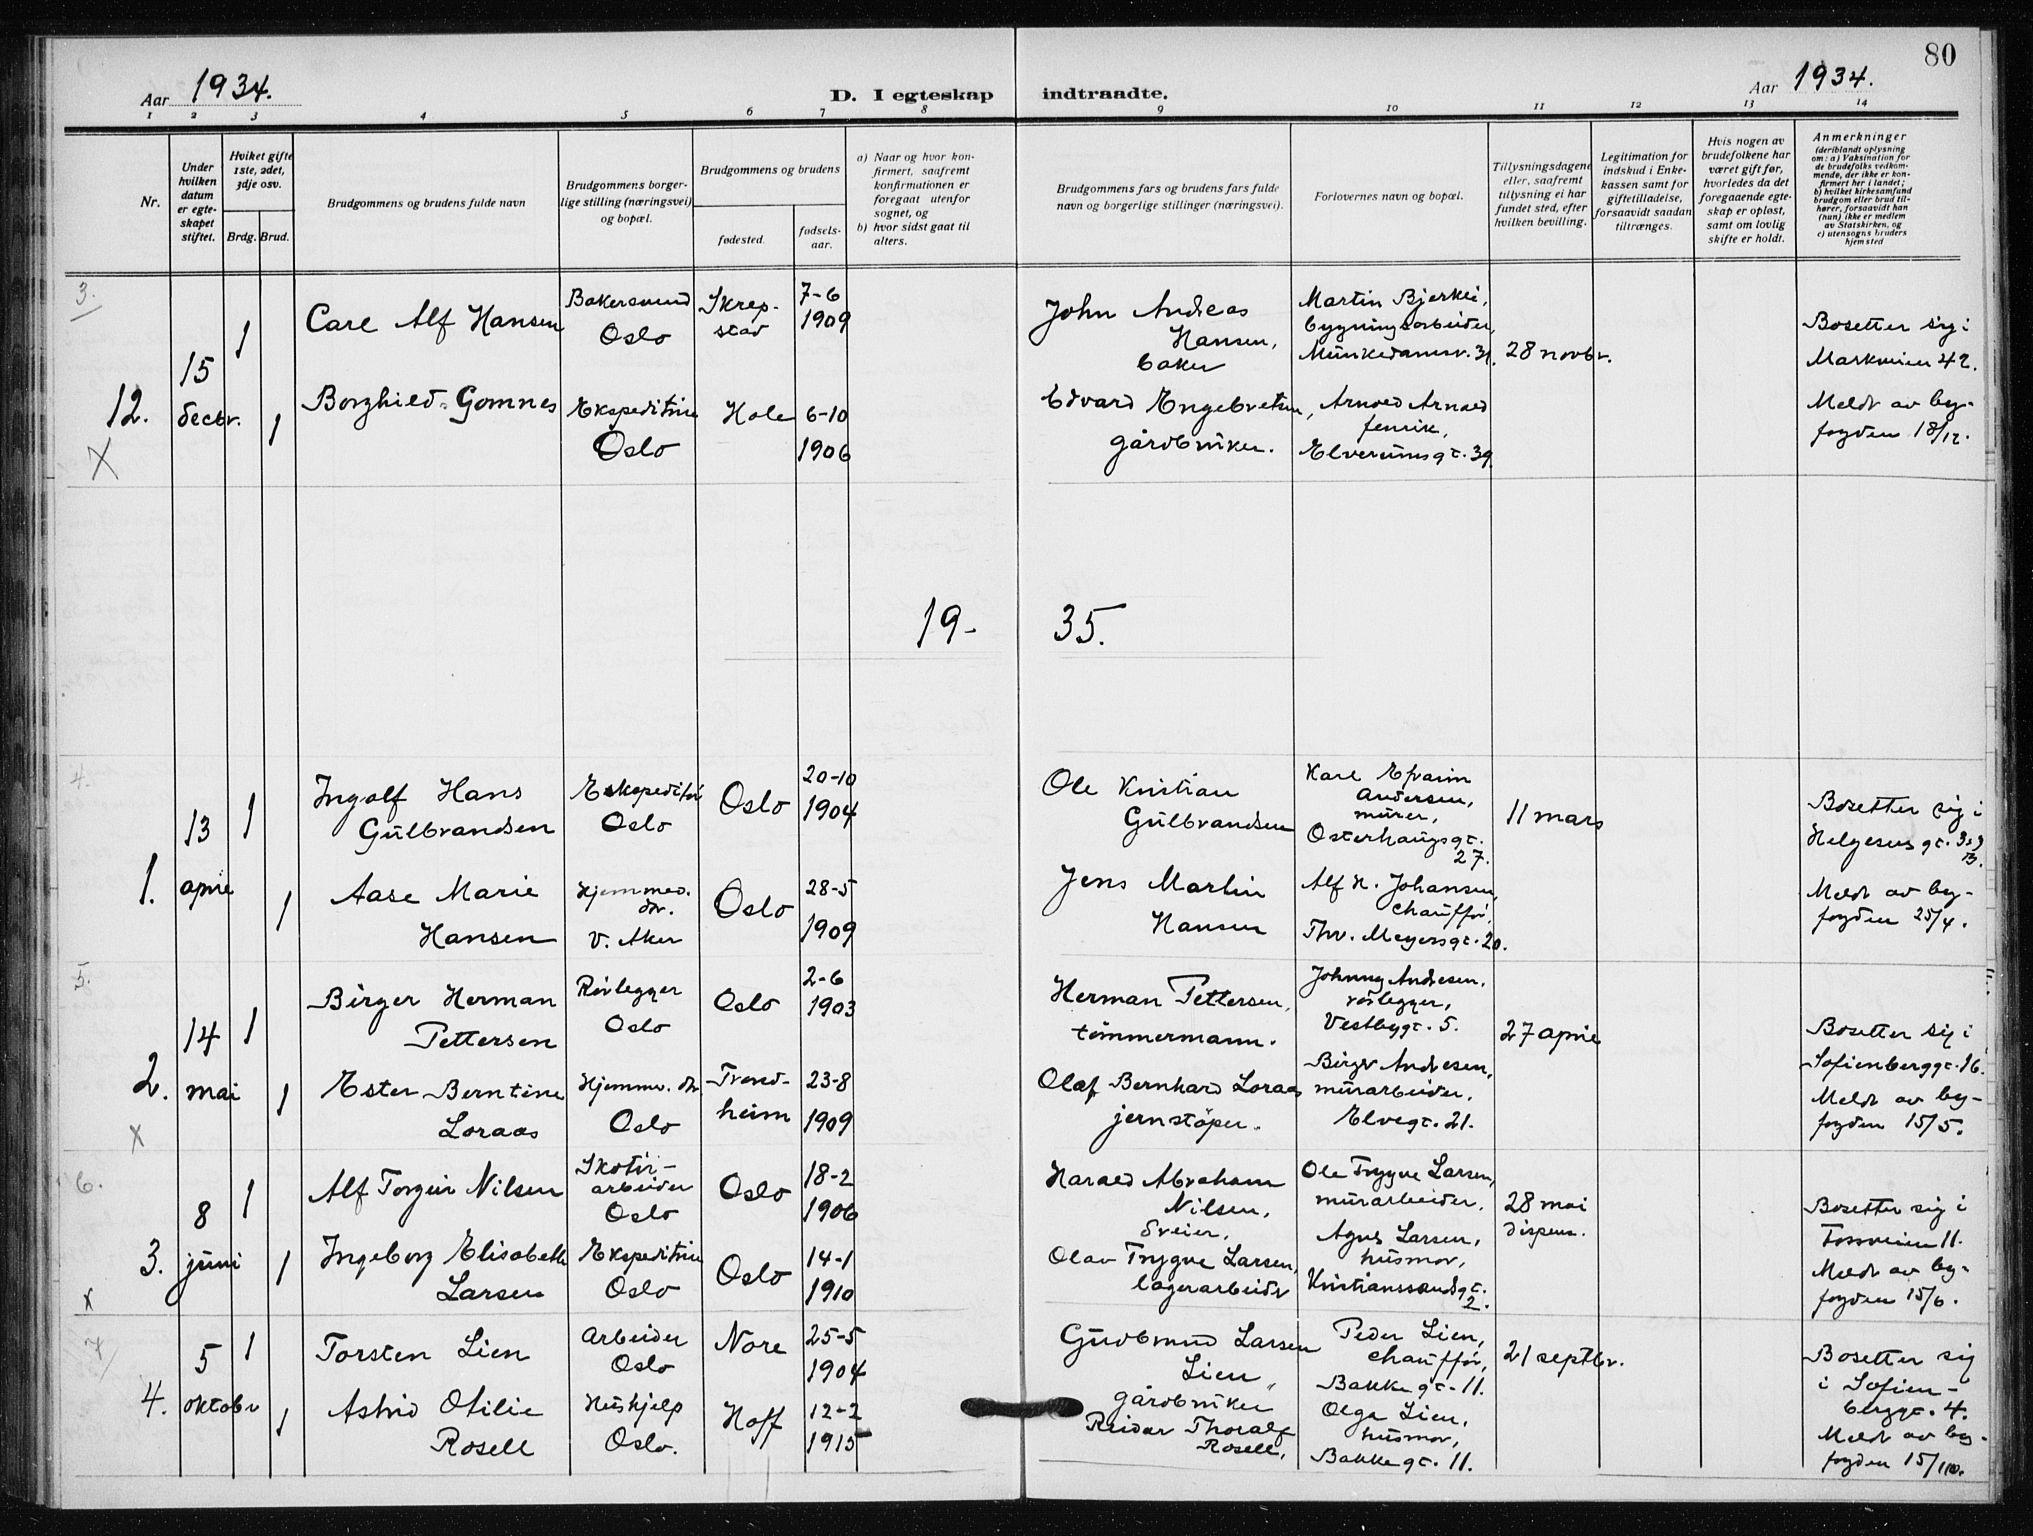 80
Aar 1934.
D. I egteskap indtraadte.
Aar 1934.
1 2 3 4 5 6 7 8 9 10 11 12 13 14
Nr.
Under hvilken datum er egteskapet stiftet.
Hviket gifte 1ste, 2det, 3dje osv.
Brdg. Brud.
Brudgommens og brudens fulde navn
Brudgommens borgerlige stilling (næringsvei) og bopæl.
Brudgommens og brudens
fødested.
fødselsaar.
a) Naar og hvor konfirmert, saafremt konfirmationen er foregaat utenfor sognet, og
b) hvor sidst gaat til alters.
Brudgommens fars og brudens fars fulde navn og borgerlige stillinger (næringsvei).
Forlovernes navn og bopæl.
Tillysningsdagene eller, saafremt tillysning ei har fundet sted, efter hvilken bevilling.
Legitimation for indskud i Enkekassen samt for giftetilladelse, forsaavidt saadan tiltrænges.
Hvis nogen av brudefolkene har været gift før, hvorledes da det foregaaende egteskap er opløst, samt om lovlig skifte er holdt.
Anmerkninger
(deriblandt oplysning om: a) Vaksination for de brudefolks vedkommende, der ikke er konfirmert her i landet; b) hvilket kirkesamfund brudgom eller brud tilhører, forsaavidt han (hun) ikke er medlem av Statskirken, og c) utensogns bruders hjemsted
3.
12.
X
15
decbr.
1
Carl Alf Hansen
Bakersvend
Oslo
Skrepstad
7-6
1909
John Andreas
Hansen,
baker
Martin Bjerkei,
bygningsarbeider,
Munkedamsv. 31.
28 novbr.
Bosetter sig i
Markveien 42.
1
Borghild Gomnes
Ekspeditrice
Oslo
Hole
6-10
1906
Edvard Engebretsen,
gårdbruker.
Arnold Arnold
fenrik,
Elverumsgt. 39.
Meldt av by-
fogden 18/12.
19-35.
4.
1.
13
april
1
Ingolf Hans
Gulbrandsen
Ekspeditør
Oslo
Oslo
20-10
1904
Ole Kristian
Gulbrandsen
Karl Efraim
Andersen,
murer,
Osterhausgt.
27.
11 mars
Bosetter sig i
Helgesens gt. 
B.
1
Aase Marie
Hansen
Hjemmev.
dtr.
V. Aker
Oslo
28-5
1909
Jens Martin
Hansen
Alf H. Johansen,
chauffør,
Thv. Meyersgt. 20.
Meldt av by-
fogden 25/4.
5.
2.
X
14
mai
1
Birger Herman
Pettersen
Rørlegger
Oslo
Oslo
2-6
1903
Herman Pettersen,
tømmermann.
Johnny Andresen,
rørlegger,
Vestbygt. 5.
27 april
Bosetter sig i
Sofienberggt. 16.
1
Ester Berntine
Loraas
Hjemmev. dtr.
Oslo
Trondheim
23-8
1909
Olaf Bernhard Loraas
jernstøper.
Birger Andresen,
murarbeider,
Elvegt. 21.
Meldt av by-
fogden 15/5.
6.
3.
X
8
juni
1
Alf Torgeir Nilsen
Skotøi-
arbeider
Oslo
Oslo
18-2
1906
Harald Abraham
Nilsen,
dreier,
Ole Trygve Larsen,
murarbeider.
28 mai
dispens.
Bosetter sig i
Fossveien 11.
1
Ingeborg Elisabeth
Larsen
Ekspeditrice
Oslo
Oslo
14-1
1910
Olav Trygve Larsen,
lagerarbeider
Agnes Larsen,
husmor,
Kristianssandsgt.
2.
Meldt av by-
fogden 15/6.
7
4.
5
oktober
1
Torsten Lien
Arbeider
Oslo
Nore
25-5
1904
Gudbrand Larsen
Lien,
gårdbruker
Peder Lien,
chauffør,
Bakkegt. 11.
21 septbr.
Bosetter sig
i Sofien-
berggt. 4.
1
Astrid Otilie
Rosell
Hushjelp
Oslo.
Hoff
12-2
1915
Reidar Thoralf
Rosell,
Olga Lien,
husmor,
Bakkegt. 11.
Meldt av by-
fogden 15/10.